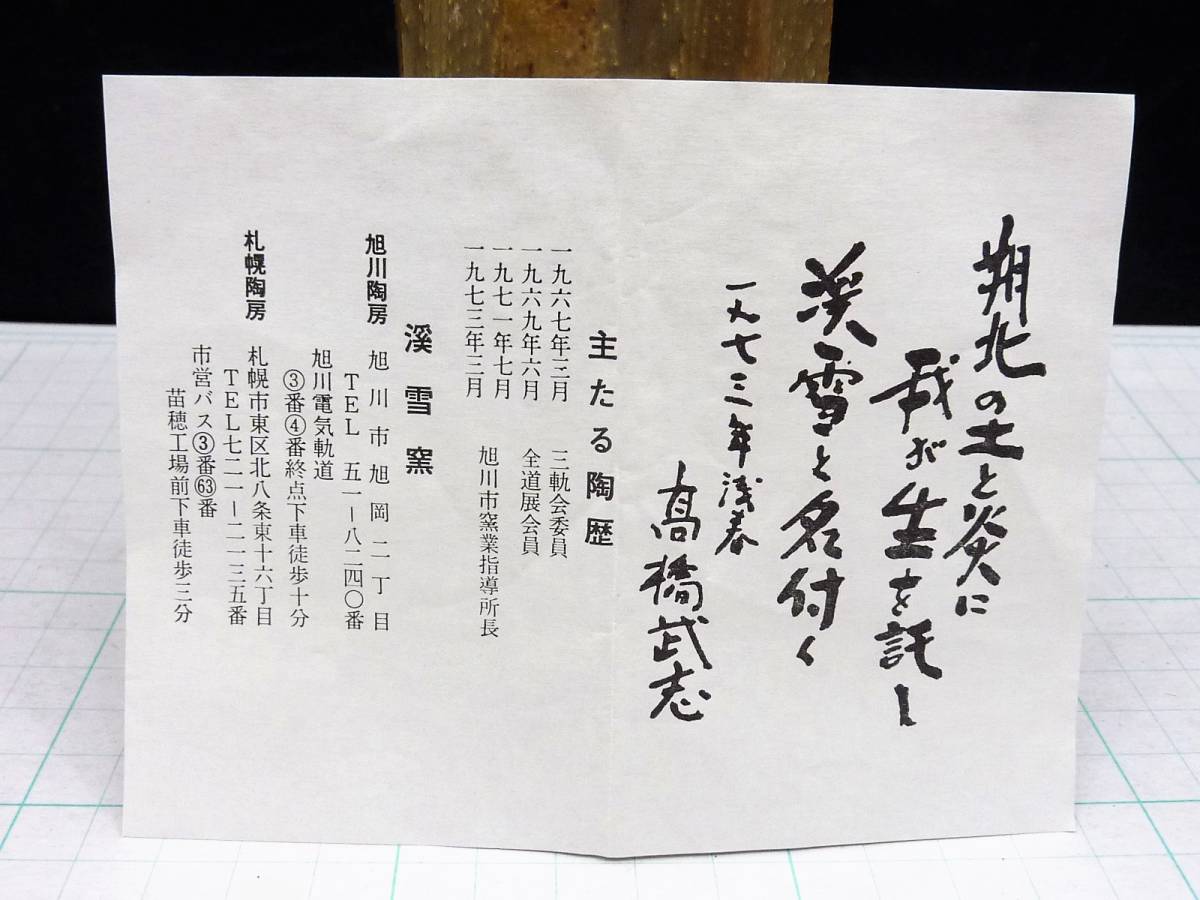 朔北の土と炎に
我が生を託し
渓雪と名付く
一九七三年浅春
高橋武志
主たる陶歴
一九六七年三月 三軌会委員
一九六九年六月 全道展会員
一九七一年七月
一九七三年三月 旭川市窯業指導所長
溪雪窯
旭川陶房 旭川市旭岡二丁目
TEL 五一ー八二四〇番
旭川電気軌道
③番④番終点下車徒歩十分
札幌陶房 札幌市東区北八条東十六丁目
TEL七二一ー二一三五番
市営バス③番63番
苗穂工場前下車徒歩三分